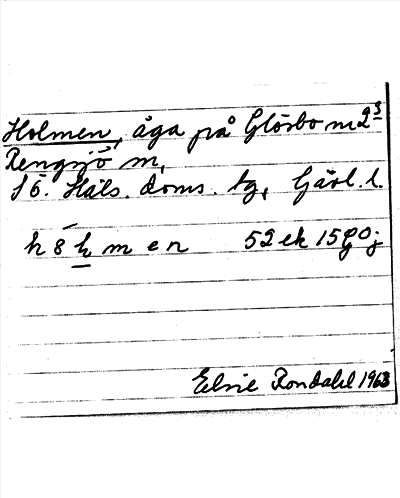 Holmen, äga på Glösbo nr 2³
Rengsjö sn,
S ö. Häls. doms. tg, Gävl. l.
h 8 h m e n 52 ek 15 g 0 j
Elsie Rondahl 1963